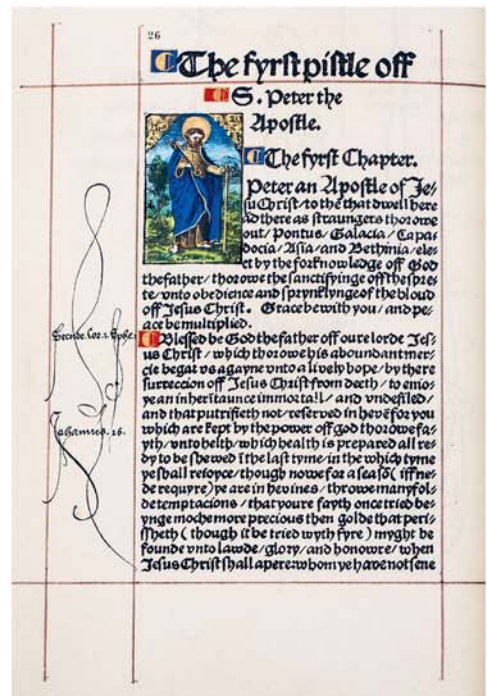 26
The fyrst pistle off
S. Peter the
Apostle.
The fyrst Chapter.
Peter an Apostle of Je/
su Christ/ to the that dwell here
ād there as straungers thorowe
out/ Pontus/ Galacia/ Capa/
docia/ Asia/ and Bethinia/ ele/
ct by the forknowledge off God
the father/ thorowe the sanctifyinge off the spre/
te/ vnto obedience and sprynklynge of the bloud
off Jesus Christ. Grace be with you/ and pe/
ace be multiplied.
Blessed be God the father off oure lorde Jes/
us Christ/ which thorowe his aboundant mer/
cie begat vs agayne vnto a lively hope/ by there
surreccion off Jesus Christ from deeth/ to enio/
ye an inheritaunce immortall/ and vndefiled/
and that putrifieth not/ reserved in hevē for you
which are kept by the power off god thorowe fa/
yth/ vnto helth/ which health is prepared all re/
dy to be shewed ī the last tyme/ in the which tyme
ye shall reioyce/ though nowe for a seasō( iff ne/
de requyre) ye are in hevines/ throwe manyfol/
de temptacions/ that youre fayth once tried be/
ynge moche more precious then golde that peri/
ssheth ( though it be tried wyth fyre ) myght be
founde vnto lawde/ glory/ and honowre/ when
Jesus Christ shall apere: whom ye have not sene
Secunde. Cor. 1. Ephe. 1.
Johannes. 16.